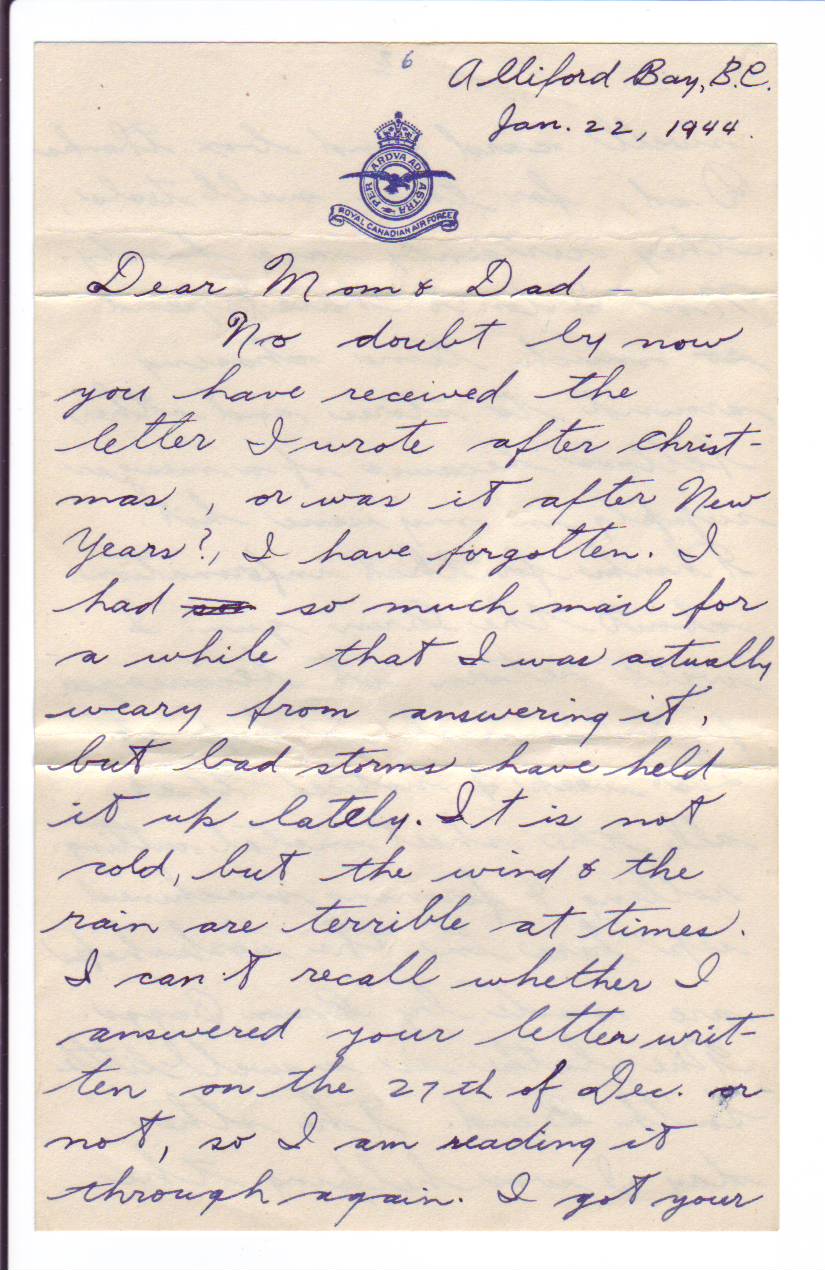 6
Alliford Bay, B.C.
Jan. 22, 1944.
PER ARDVA AD ASTRA
ROYAL CANADIAN AIR FORCE
Dear Mom & Dad –
No doubt by now
you have received the
letter I wrote after Christ-
mas, or was it after New
Years?, I have forgotten. I
had so so much mail for
a while that I was actually
weary from answering it,
but bad storms have held
it up lately. It is not
cold, but the wind & the
rain are terrible at times.
I can't recall whether I
answered your letter writ-
ten on the 27th of Dec. or
not, so I am reading it
through again. I got your